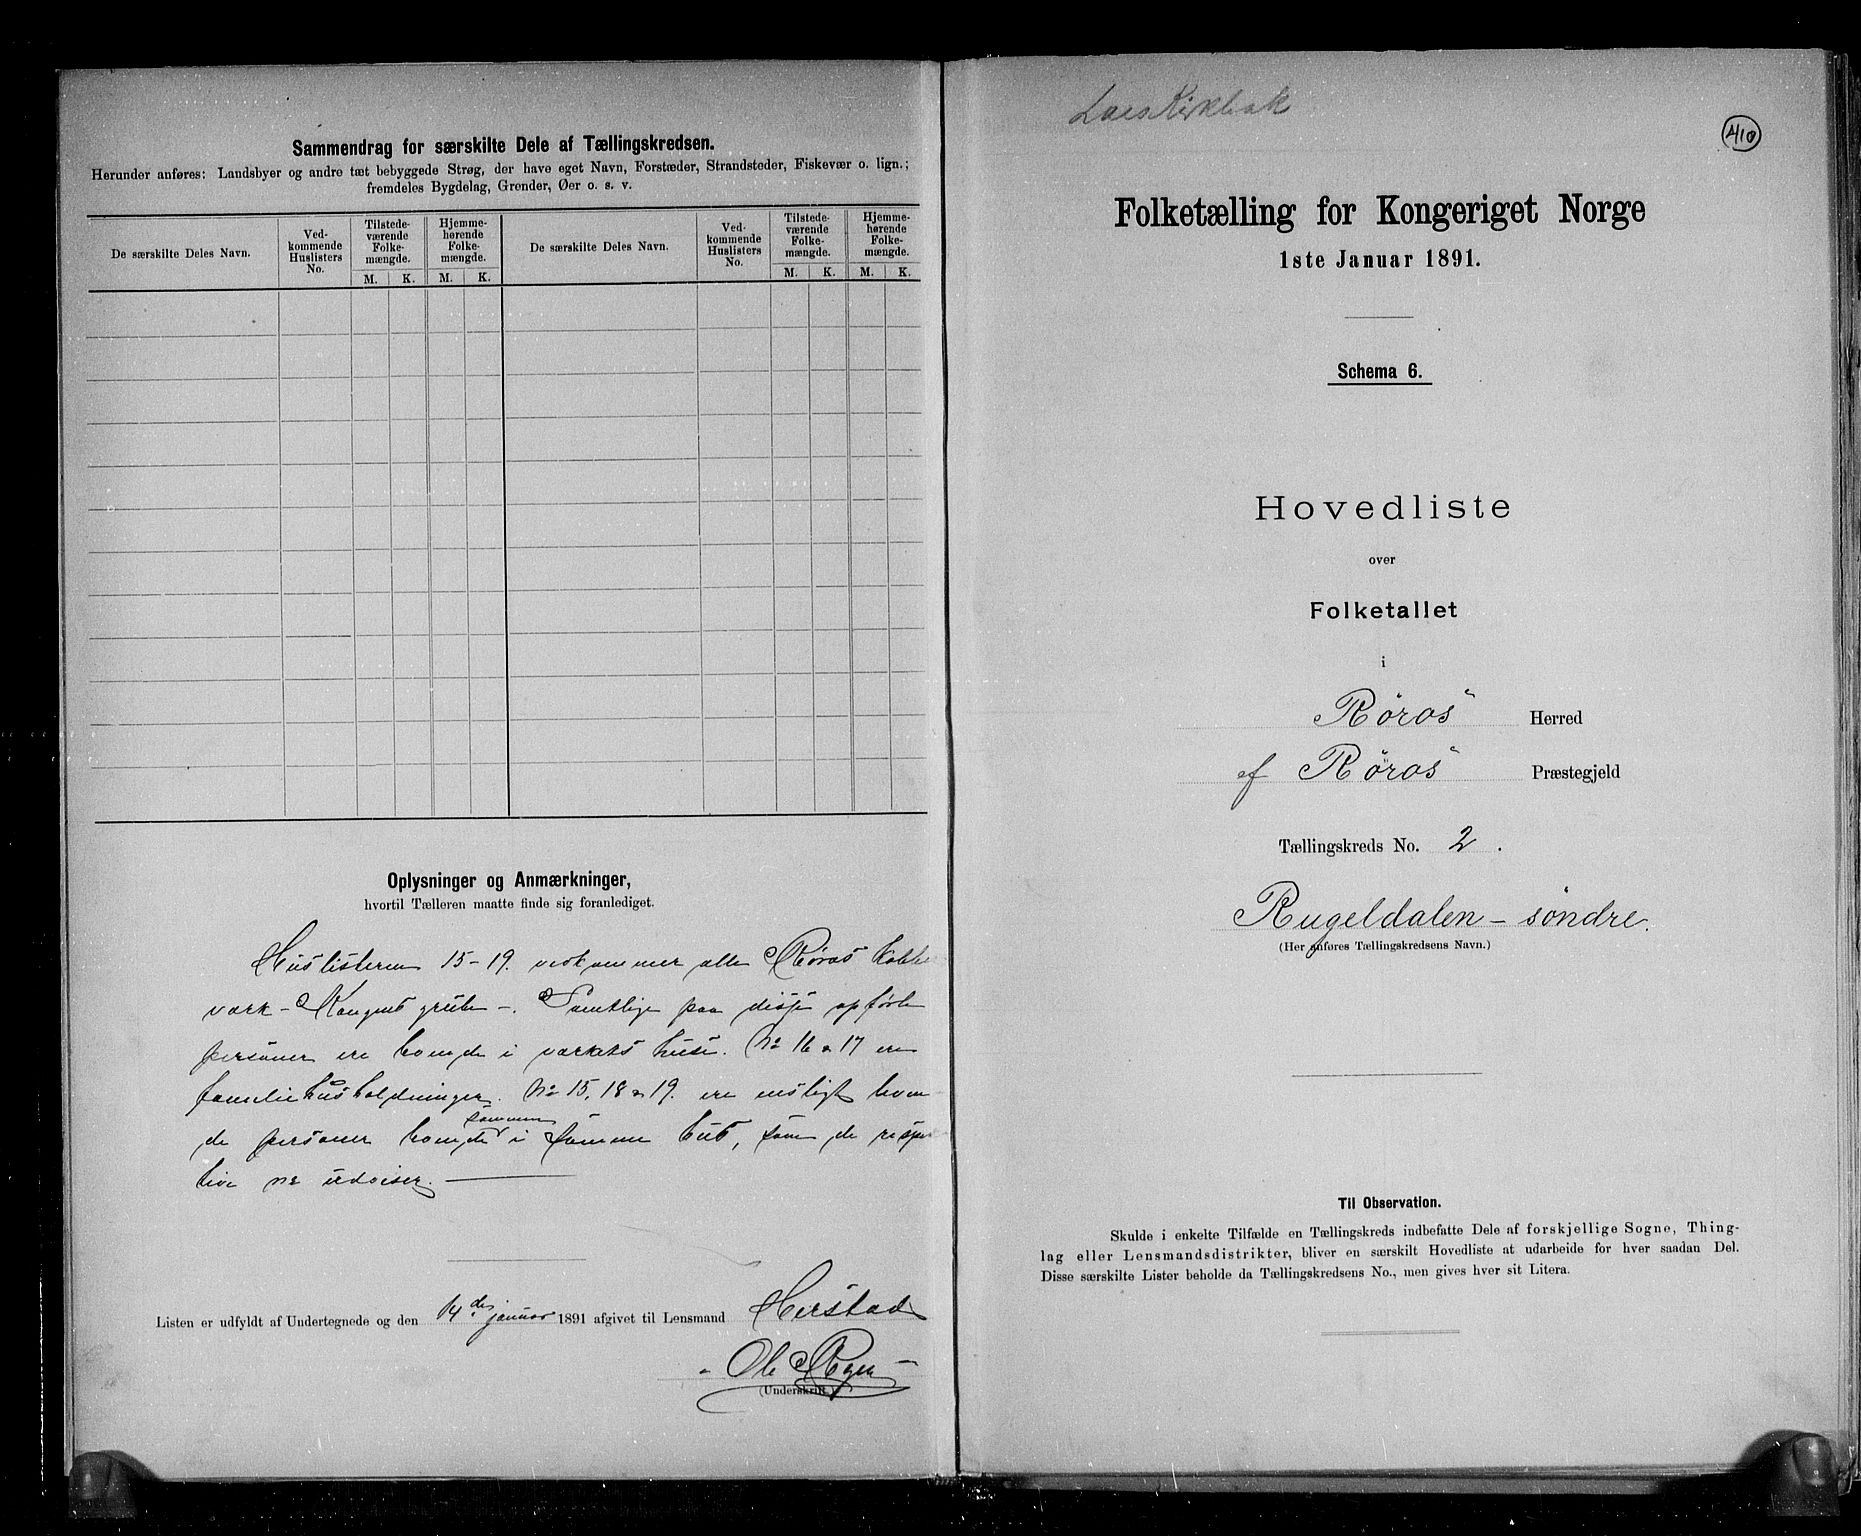 Sammendrag for særskilte Dele af Tællingskredsen.
Herunder anføres: Landsbyer og andre tæt bebyggede Strøg, der have eget Navn, Forstæder, Strandsteder, Fiskevær o. lign.;
fremdeles Bygdelag, Grender, Øer o. s. v.
De særskilte Deles Navn.
Ved-
kommende
Huslisters
No.
Tilstede-
værende
Folke-
mængde.
Hjemme-
hørende
Folke-
mængde.
M. K. M. K.
De særskilte Deles Navn.
Ved-
kommende
Huslisters
No.
Tilstede-
værende
Folke-
mængde.
Hjemme-
hørende
Folke-
mængde.
M. K. M. K.
Oplysninger og Anmærkninger,
hvortil Tælleren maatte finde sig foranlediget.
Huslisterne 15-19. vedkommer alle Røros Kobber
værk - Kongens grube -. Samtlige paa disse opførte
personer ere boende i værkets huse. No 16 & 17 ere
familiehusholdninger. No 15, 18 & 19. ere ensligt boen
de personer boende sammen i samme hus, som de respek
tive no udviser.
Listen er udfyldt af Undertegnede og den 14de januar 1891 afgivet til Lensmand Herstad
Ole
(Underskrift.)
Lars Kirkbak
410
Folketælling for Kongeriget Norge
1ste Januar 1891.
Schema 6.
Hovedliste
over
Folketallet
i
Røros Herred
af Røros Præstegjeld
Tællingskreds No. 2.
Rugeldalen - søndre.
(Her anføres Tællingskredsens Navn.)
Til Observation.
Skulde i enkelte Tilfælde en Tællingskreds indbefatte Dele af forskjellige Sogne, Thing-
lag eller Lensmandsdistrikter, bliver en særskilt Hovedliste at udarbeide for hver saadan Del.
Disse særskilte Lister beholde da Tællingskredsens No., men gives hver sit Litera.